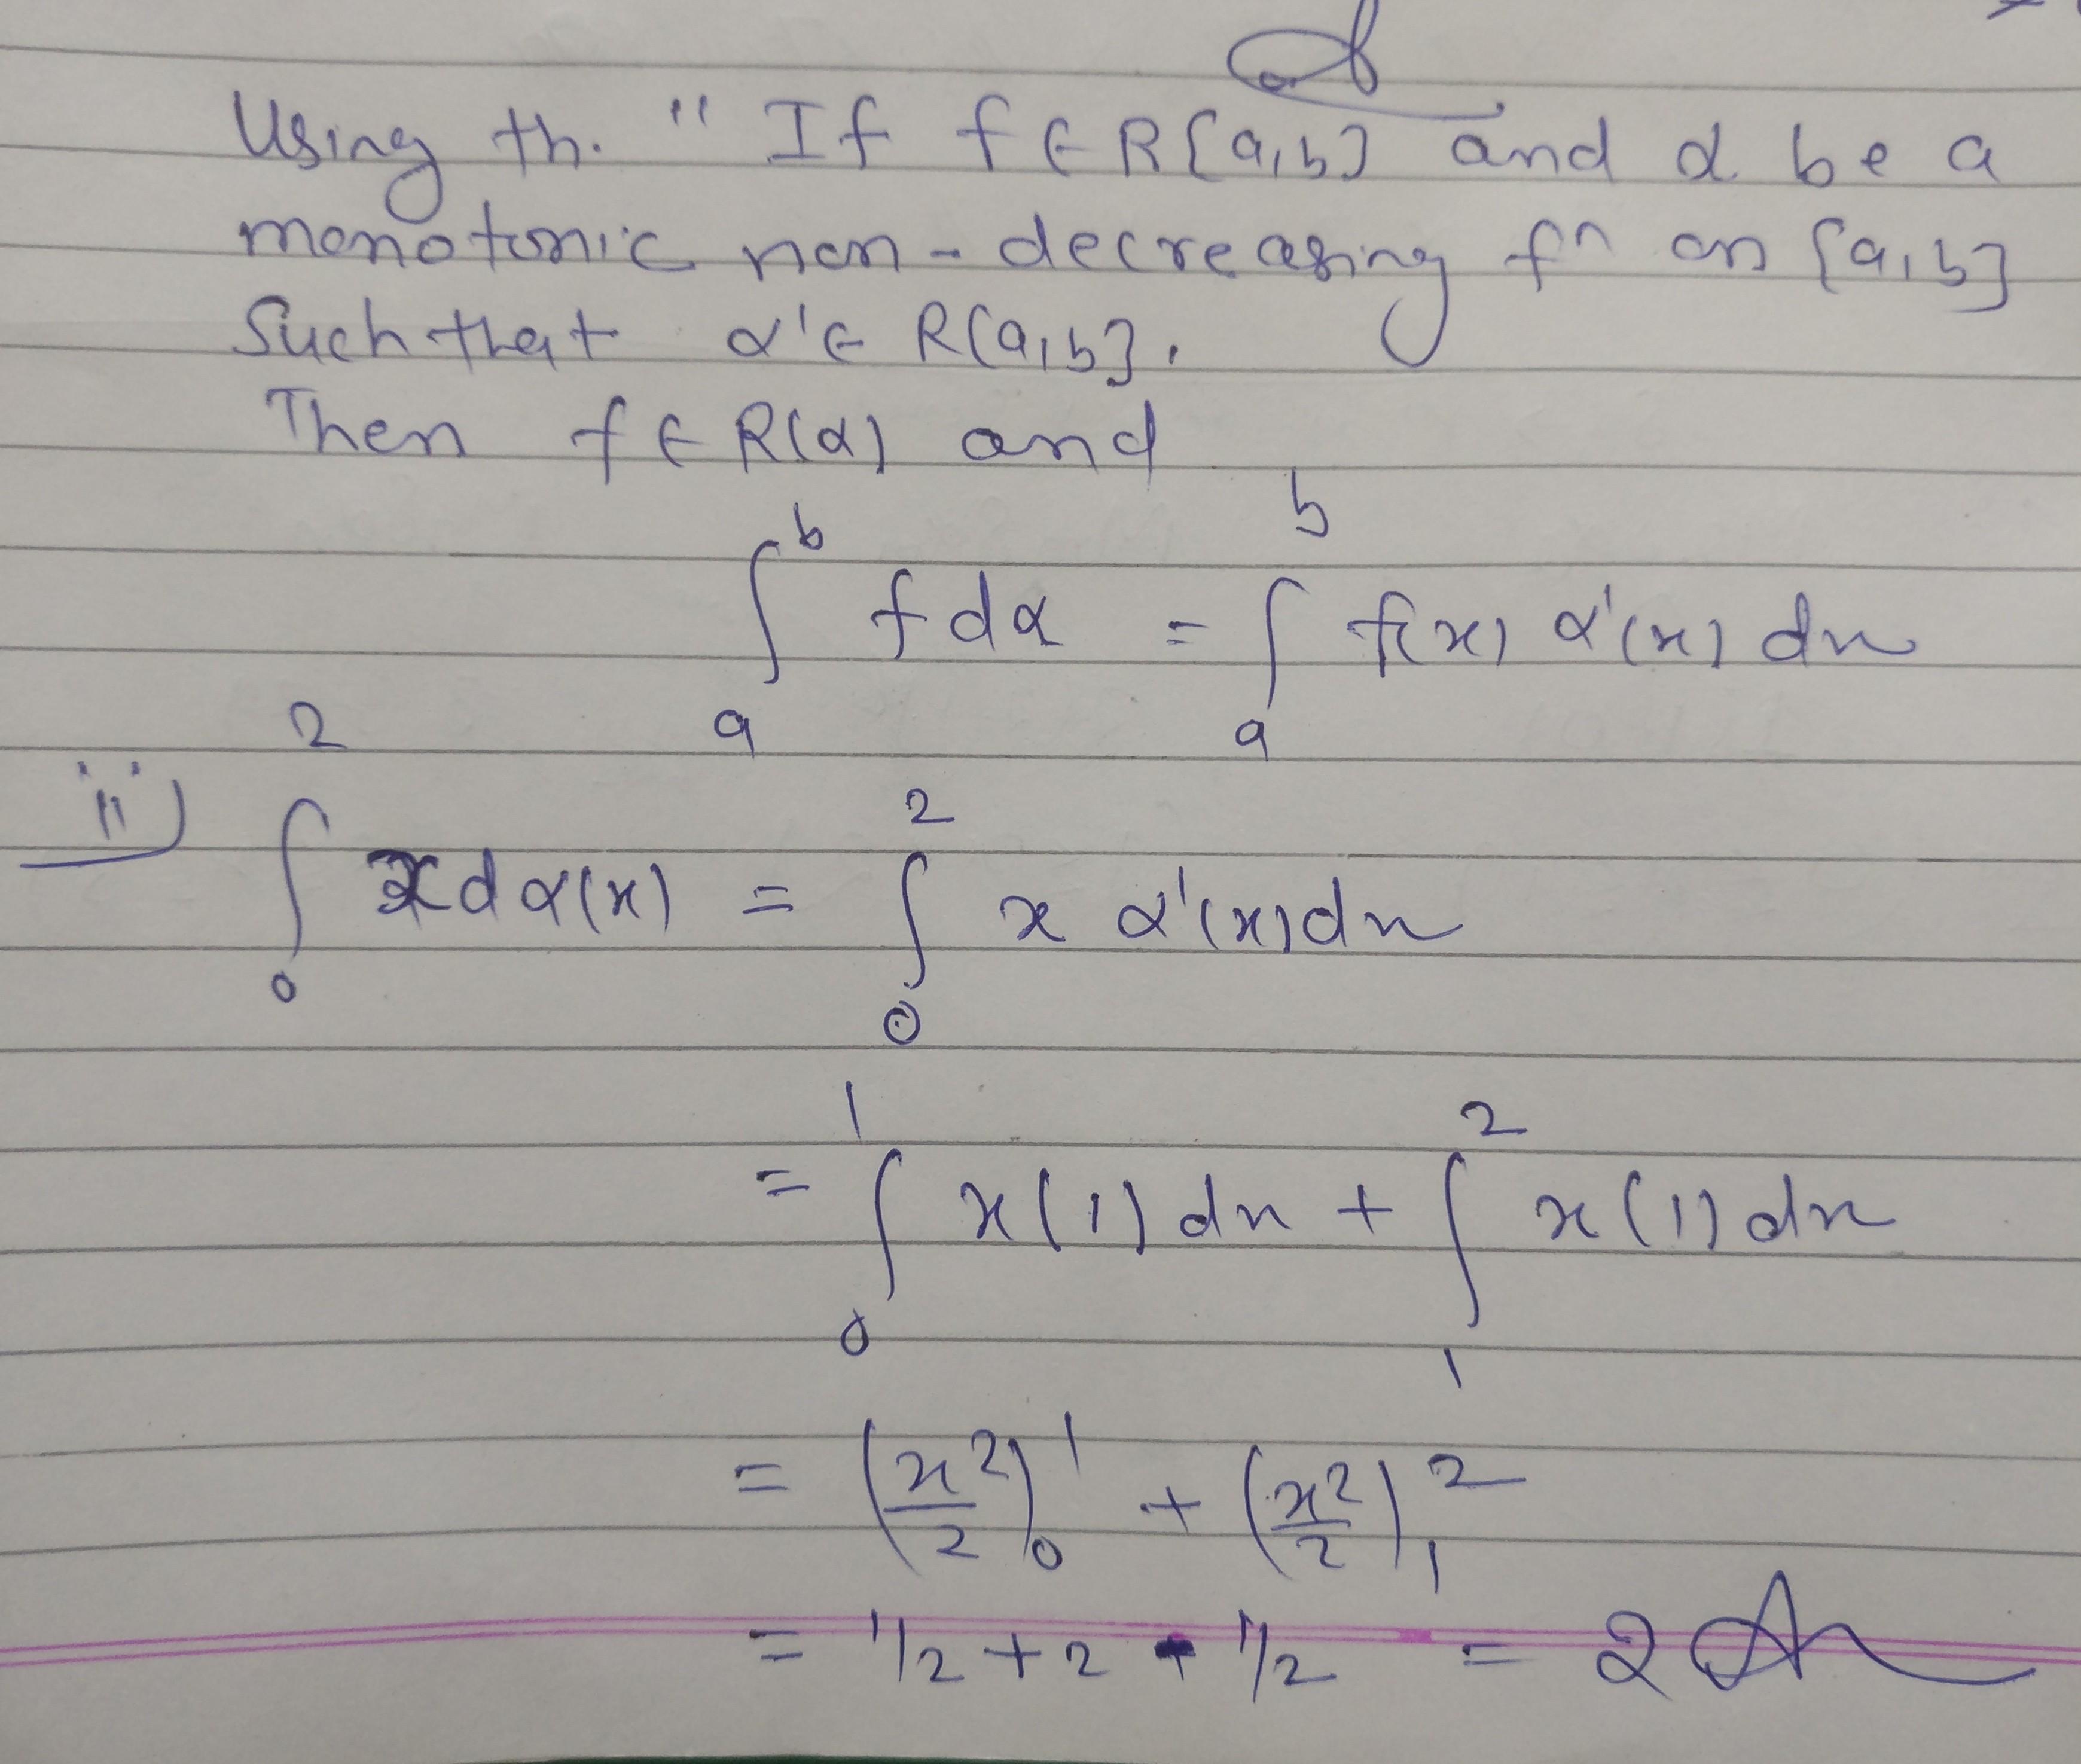 Using th. " If f ∈ R[a,b] and α be a
monotonic non-decreasing fⁿ on [a,b]
Such that α' ∈ R[a,b].
Then f ∈ R(α) and
∫_a^b f dα = ∫_a^b f(x) α'(x) dx
ii) ∫_0^2 x dα(x) = ∫_0^2 x α'(x) dx
= ∫_0^1 x(1) dx + ∫_1^2 x(1) dx
= (x²/2)_0^1 + (x²/2)_1^2
= 1/2 + 2 - 1/2 = 2